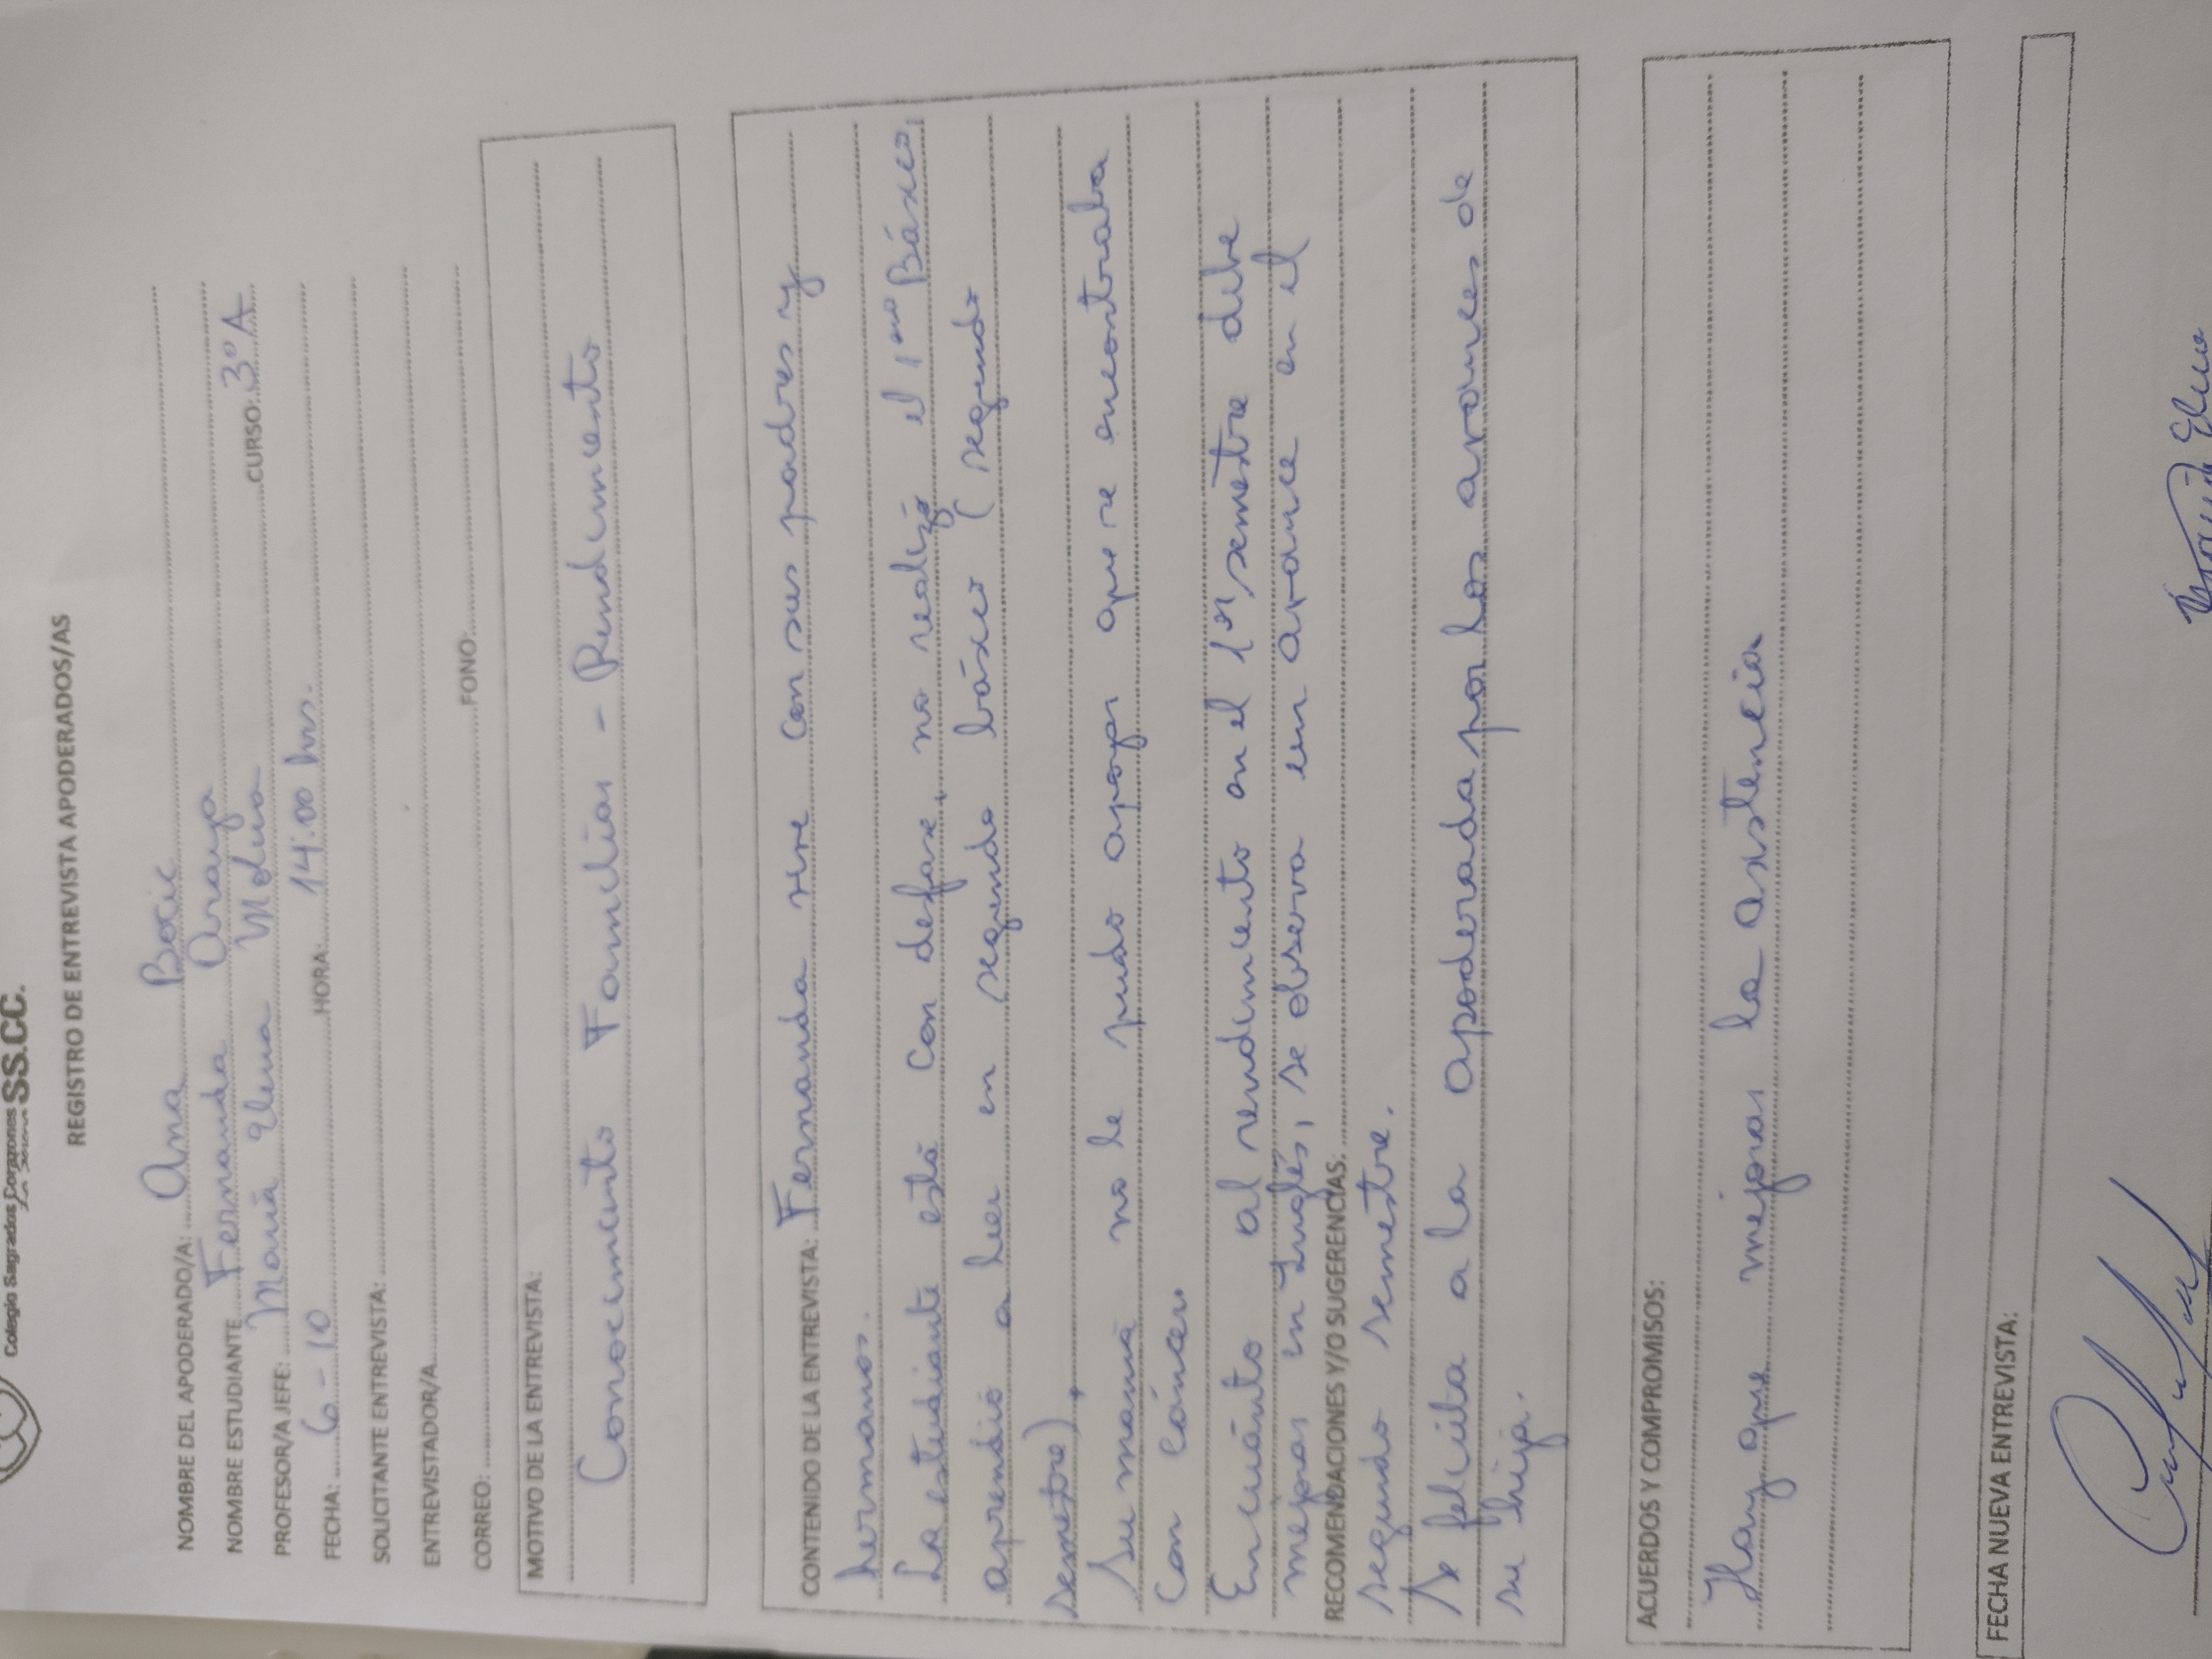 Colegio Sagrados Corazones SS.CC.
REGISTRO DE ENTREVISTA APODERADOS/AS
NOMBRE DEL APODERADO/A: Ana Boric
NOMBRE ESTUDIANTE Fernanda Araya CURSO: 3º A
PROFESOR/A JEFE: María Elena
FECHA: 6-10 HORA: 14:00 hrs.
SOLICITANTE ENTREVISTA:
ENTREVISTADOR/A
CORREO: FONO:
MOTIVO DE LA ENTREVISTA:
Conocimiento Familiar - Rendimiento
CONTENIDO DE LA ENTREVISTA: Fernanda vive con sus padres y
hermanos.
La estudiante está con desfase, no realizó el 1ero Básico,
aprendió a leer en segundo básico (segundo
semestre),
Su mamá no le pudo apoyar que se encontraba
con cáncer.
En cuánto al rendimiento en el 1er semestre debe
mejorar en Inglés, se observa un avance en el
RECOMENDACIONES Y/O SUGERENCIAS:
segundo semestre.
Se felicita a la apoderada por los avances de
su hija.
ACUERDOS Y COMPROMISOS:
Hay que mejorar la asistencia
FECHA NUEVA ENTREVISTA: